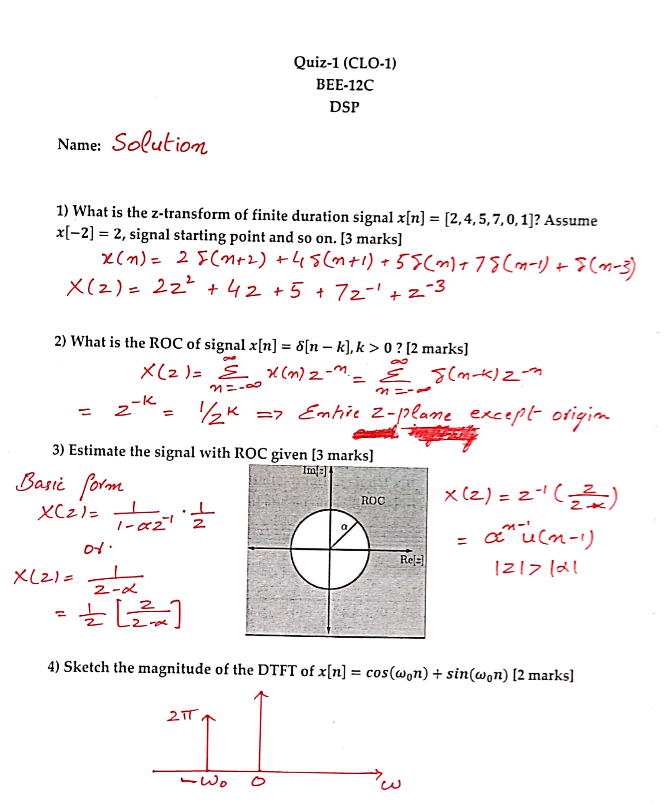 Quiz-1 (CLO-1)
BEE-12C
DSP
Name: Solution
1) What is the z-transform of finite duration signal x[n] = [2, 4, 5, 7, 0, 1]? Assume
x[−2] = 2, signal starting point and so on. [3 marks]
x(n) = 2 δ(n+2) + 4 δ(n+1) + 5 δ(n) + 7 δ(n-1) + δ(n-3)
X(z) = 2z² + 4z + 5 + 7z⁻¹ + z⁻³
2) What is the ROC of signal x[n] = δ[n − k], k > 0 ? [2 marks]
X(z) = ∞Σn=-∞ x(n) z⁻ⁿ = ∞Σn=-∞ δ(n-k) z⁻ⁿ
= z⁻ᴷ = 1/zᴷ => Entire z-plane except origin
3) Estimate the signal with ROC given [3 marks]
Basic form
X(z) = 1/(1-αz⁻¹) · 1/z
or.
X(z) = 1/(z-α)
= 1/z [z/(z-α)]
Im[z]
ROC
α
Re[z]
X(z) = z⁻¹ (z/(z-α))
= αⁿ⁻¹ u(n-1)
|z| > |α|
4) Sketch the magnitude of the DTFT of x[n] = cos(ω₀n) + sin(ω₀n) [2 marks]
2π
-ω₀ 0 ω